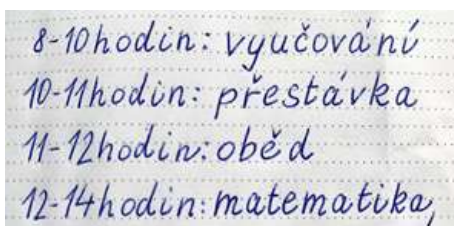 8-10hodin: vyučování
10-11hodin: přestávka
11-12hodin: oběd
12-14hodin: matematika,